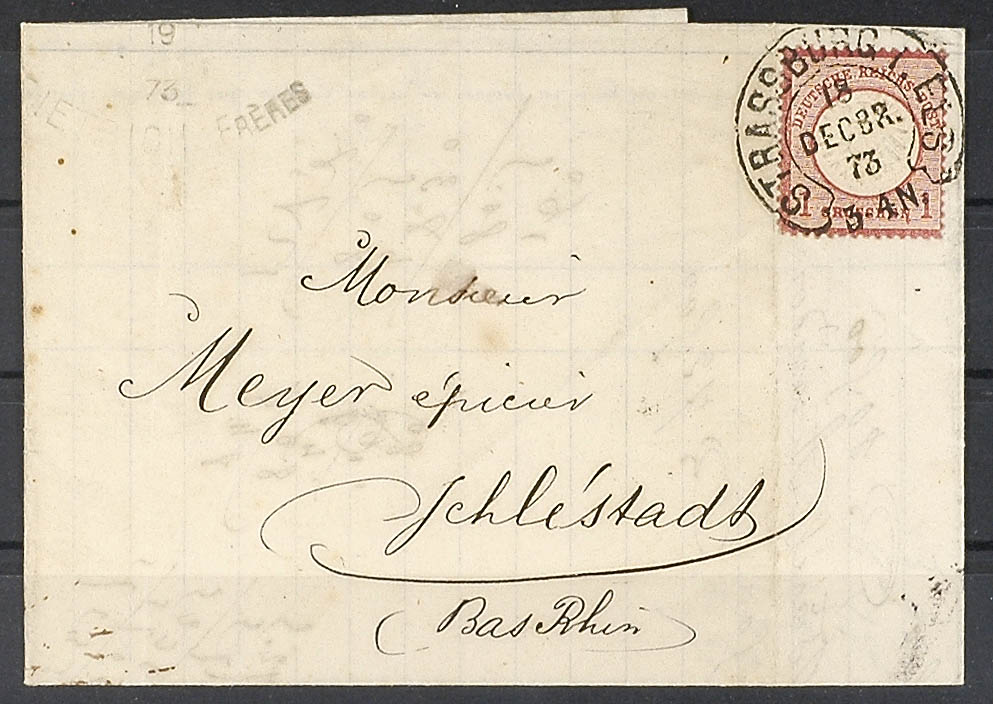 19
73
FRÈRES
STRASSBURG I. ELS.
18
DECBR.
73
3 AN.
DEUTSCHE REICHS POST
1 GROSCHEN 1
Monsieur
Meyer épicier
Schléstadt
(Bas Rhin)